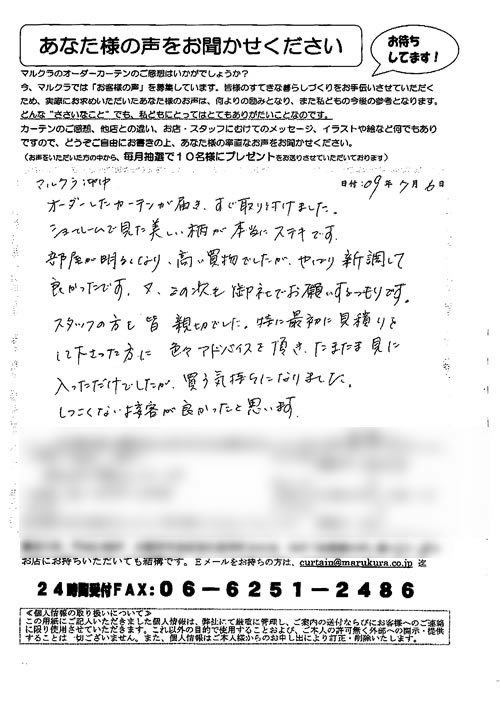 あなた様の声をお聞かせください
お待ち
してます!
マルクラのオーダーカーテンのご感想はいかがでしょうか?
今、マルクラでは「お客様の声」を募集しています。皆様のすてきな暮らしづくりをお手伝いさせていただく
ため、実際にお求めいただいたあなた様のお声は、何よりの励みとなり、また私どもの今後の参考となります。
どんな“ささいなこと”でも、私どもにとってはとてもありがたいことなのです。
カーテンのご感想、他店との違い、お店・スタッフにむけてのメッセージ、イラストや絵など何でもあり
ですので、どうぞご自由にお書きの上、あなた様の率直なお声をお聞かせください。
(お声をいただいた方の中から、毎月抽選で10名様にプレゼントをお送りさせていただいております)
マルクラ御中
日付:09年7月6日
オーダーしたカーテンが届き、すぐ取り付けました。
ショールームで見た美しい柄が本当にステキです。
部屋が明るくなり、高い買物でしたが、やっぱり新調して
良かったです。又、この次も御社でお願いするつもりです。
スタッフの方も皆親切でした。特に最初に見積りを
して下さった方に色々アドバイスを頂き、たまたま見に
入っただけでしたが、買う気持ちになりました。
しつこくない接客が良かったと思います。
お店にお持ちいただいても結構です。Eメールをお持ちの方は、curtain@marukura.co.jp 迄
24時間受付FAX:06-6251-2486
≪個人情報の取り扱いについて≫
この用紙にご記入いただきました個人情報は、弊社にて厳重に管理し、ご案内の送付ならびにお客様へのご連絡
に限り使用させていただきます。これ以外の目的で使用することおよび、ご本人の許可無く外部への開示・提供
することは一切ございません。また、個人情報はご本人様からのお申し出により訂正・削除いたします。